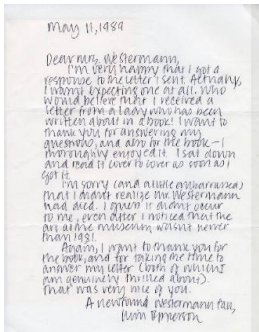 May 11, 1989
Dear Mrs. Westermann,
I'm very happy that I got a
response to the letter I sent. Actually,
I wasn't expecting one at all. Who
would believe that I received a
letter from a lady who has been
written about in a book! I want to
thank you for answering my
questions, and also for the book - I
thoroughly enjoyed it. I sat down
and read it cover to cover as soon as I
got it.
I'm sorry (and a little embarrassed)
that I didn't realize Mr. Westermann
had died. I guess it didn't occur
to me, even after I noticed that the
art at the museum wasn't newer
than 1981.
Again, I want to thank you for
the book, and for taking the time to
answer my letter (both of which I
am genuinely thrilled about).
That was very nice of you.
A newfound Westermann fan,